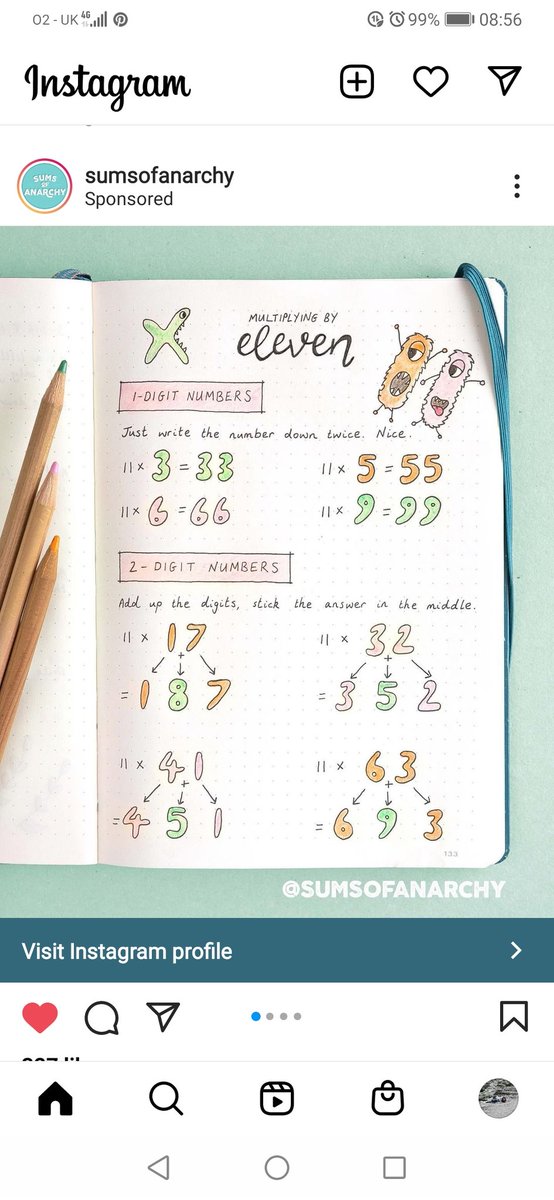 O2 - UK 4G 99% 08:56
Instagram
SUMS
OF
ANARCHY
sumsofanarchy
Sponsored
MULTIPLYING BY
eleven
1-DIGIT NUMBERS
Just write the number down twice. Nice.
11 × 3 = 33 11 × 5 = 55
11 × 6 = 66 11 × 9 = 99
2-DIGIT NUMBERS
Add up the digits, stick the answer in the middle.
11 × 17 11 × 32
+ +
= 1 8 7 = 3 5 2
11 × 41 11 × 63
+ +
= 4 5 1 = 6 9 3
133
@SUMSOFANARCHY
Visit Instagram profile